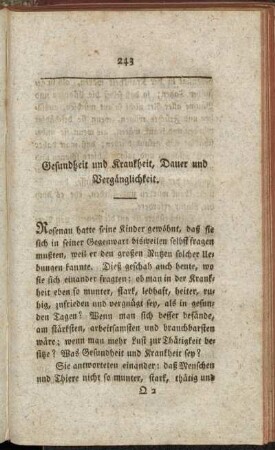 243
Gesundheit und Krankheit, Dauer und
Vergänglichkeit.
Rosenau hatte seine Kinder gewöhnt, daß sie
sich in seiner Gegenwart bisweilen selbst fragen
mußten, weil er den großen Nutzen solcher Ue-
bungen kannte. Dieß geschah auch heute, wo
sie sich einander fragten: ob man in der Krank
heit eben so munter, stark, lebhaft, heiter, ru-
hig, zufrieden und vergnügt sey, als in gesun-
den Tagen? Wenn man sich besser befände,
am stärksten, arbeitsamsten und brauchbarsten
wäre; wenn man mehr Lust zur Thätigkeit be-
sitze? Was Gesundheit und Krankheit sey?
Sie antworteten einander: daß Menschen
und Thiere nicht so munter, stark, thätig und
Q 2